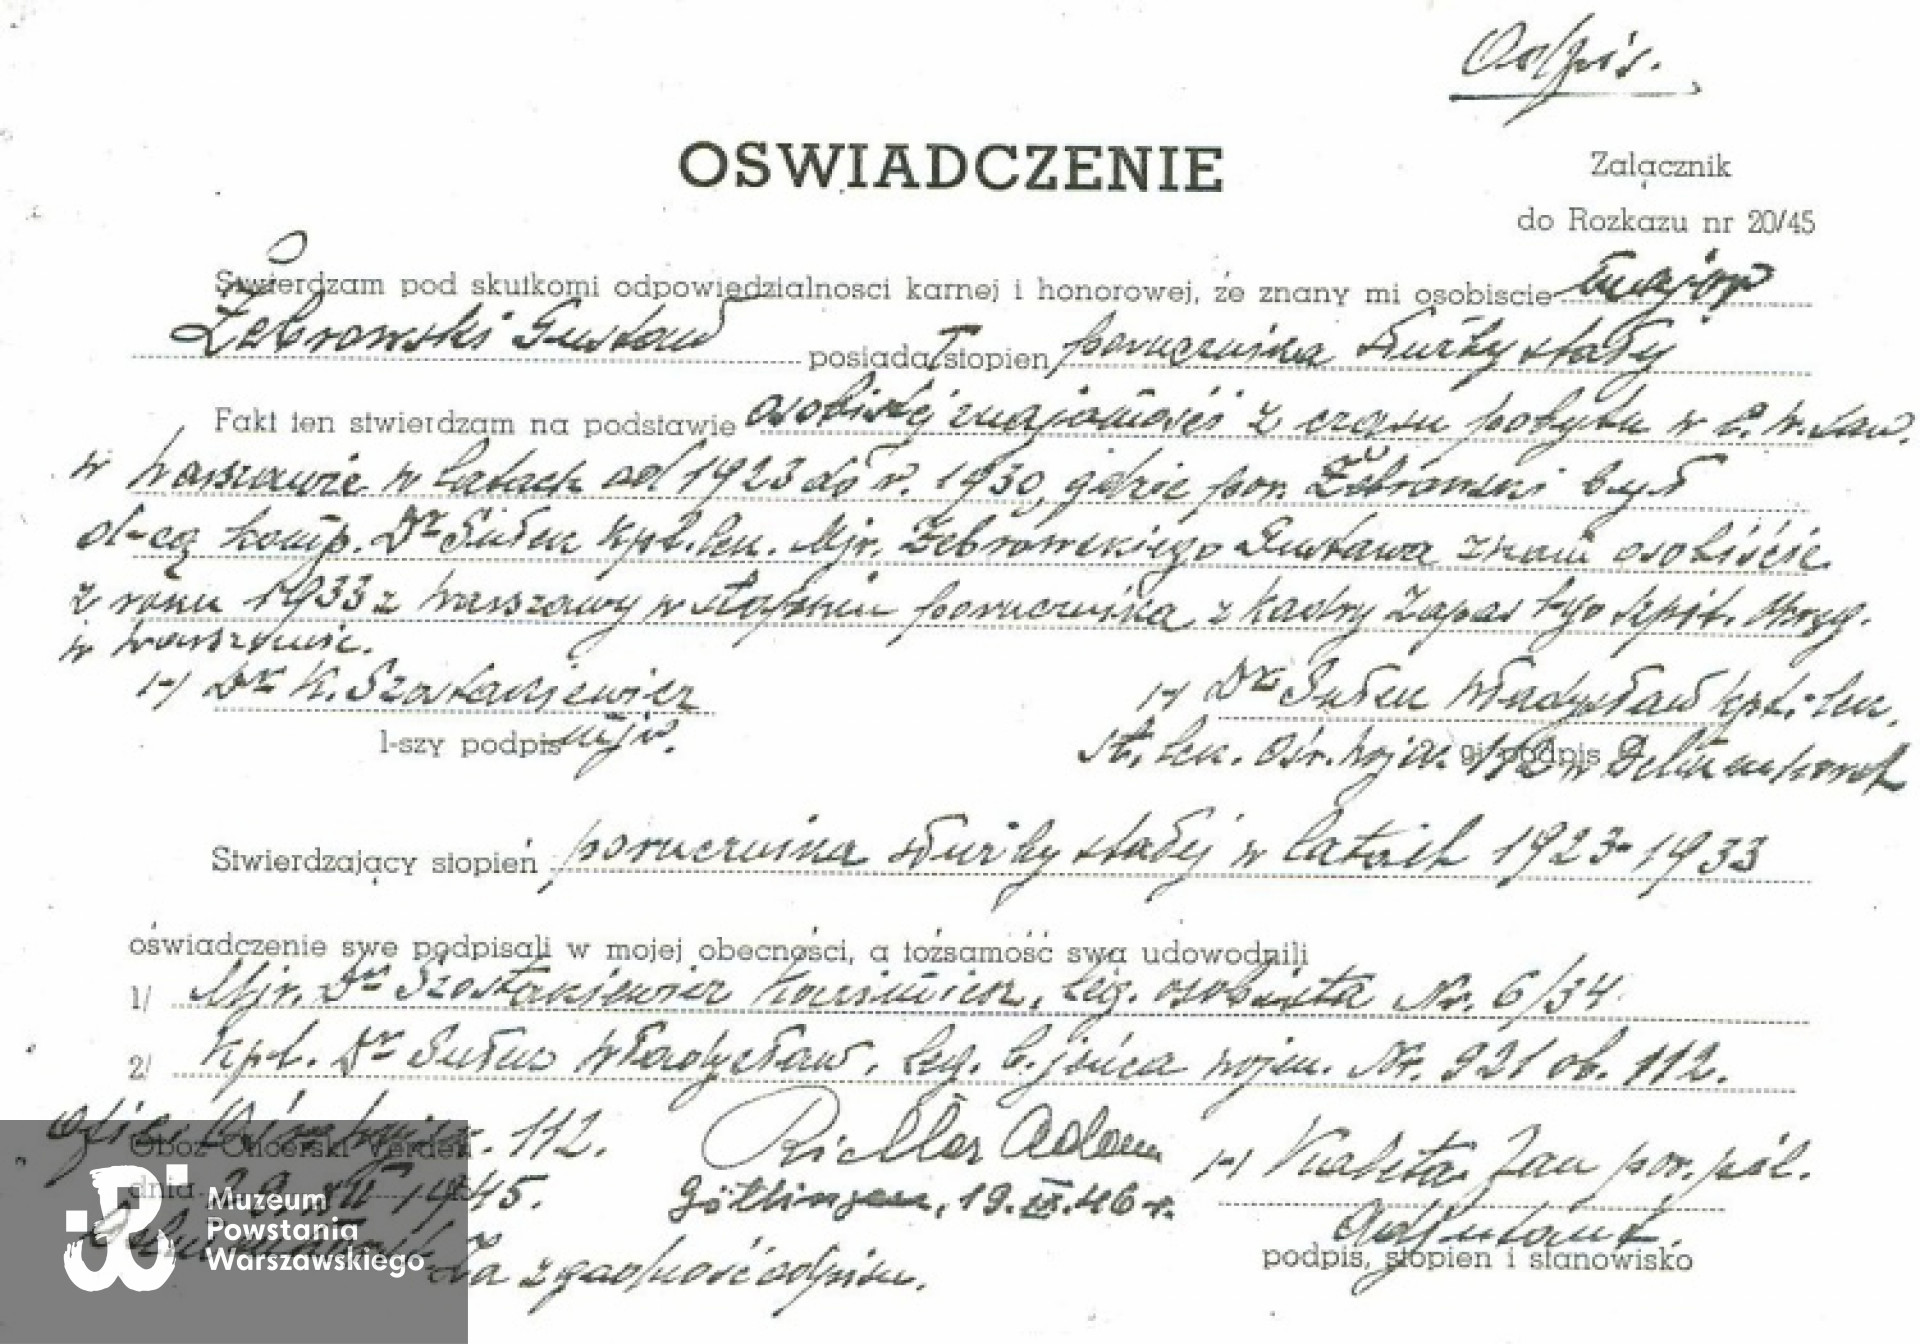 Odpis.
OSWIADCZENIE
Zalącznik
do Rozkazu nr 20/45
Stwierdzam pod skutkomi odpowiędzialnosci karnej i honorowej, że znany mi osobiscie major
Żebrowski Gustaw posiadał stopien porucznika służby stałej
Fakt ten stwierdzam na podstawie osobistej znajomości z czasu pobytu w C. W. San.
w Warszawie w latach od 1923 do r. 1930, gdzie por. Żebrowski był
d-cą komp. Dr Sułek kpt. lek. Mjr. Żebrowskiego Gustawa znam osobiście
z roku 1933 z Warszawy w stopniu porucznika z Kadry Zapas 1-go Szpit. Okręg.
w Warszawie.
/-/ Dr K. Szostakiewicz
mjr.
1-szy podpis
/-/ Dr Sułek Władysław kpt. lek.
st. lek. Ośr. Wojsk. 112 w
gi podpis
Stwierdzający stopień porucznika służby stałej w latach 1923-1933
oświadczenie swe podpisali w mojej obecności, a tożsamość swą udowodnili
1/ Mjr. Dr Szostakiewicz Kazimierz, leg. osobista Nr. 6/34.
2/ Kpt. Dr Sułek Władysław, leg. b. jeńca wojen. Nr. 921 ob. 112.
Ofic. Ośr. Wojsk. 112.
Oboz Oficerski Verden
dnia 29 XII 1945.
Richter Adam
Göttingen, 19. IX. 46 r.
/-/ Kaleta Jan por. pół.
Adjutant.
podpis, stopien i stanowisko
Za zgodność odpisu.
Muzeum
Powstania
Warszawskiego